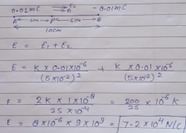 0.02mC E₂ E₁ -0.01mC
A cm cm B
10cm
E = E₁ + E₂
E = K × 0.01×10⁻⁶ / (5×10⁻²)² + K × 0.01×10⁻⁶ / (5×10⁻²)²
E = 2K × 1×10⁻⁸ / 25 × 10⁻⁴ = 200/25 × 10⁻⁶ K
E = 8×10⁻⁶ × 9 × 10⁹ = 7.2×10⁴ N/C